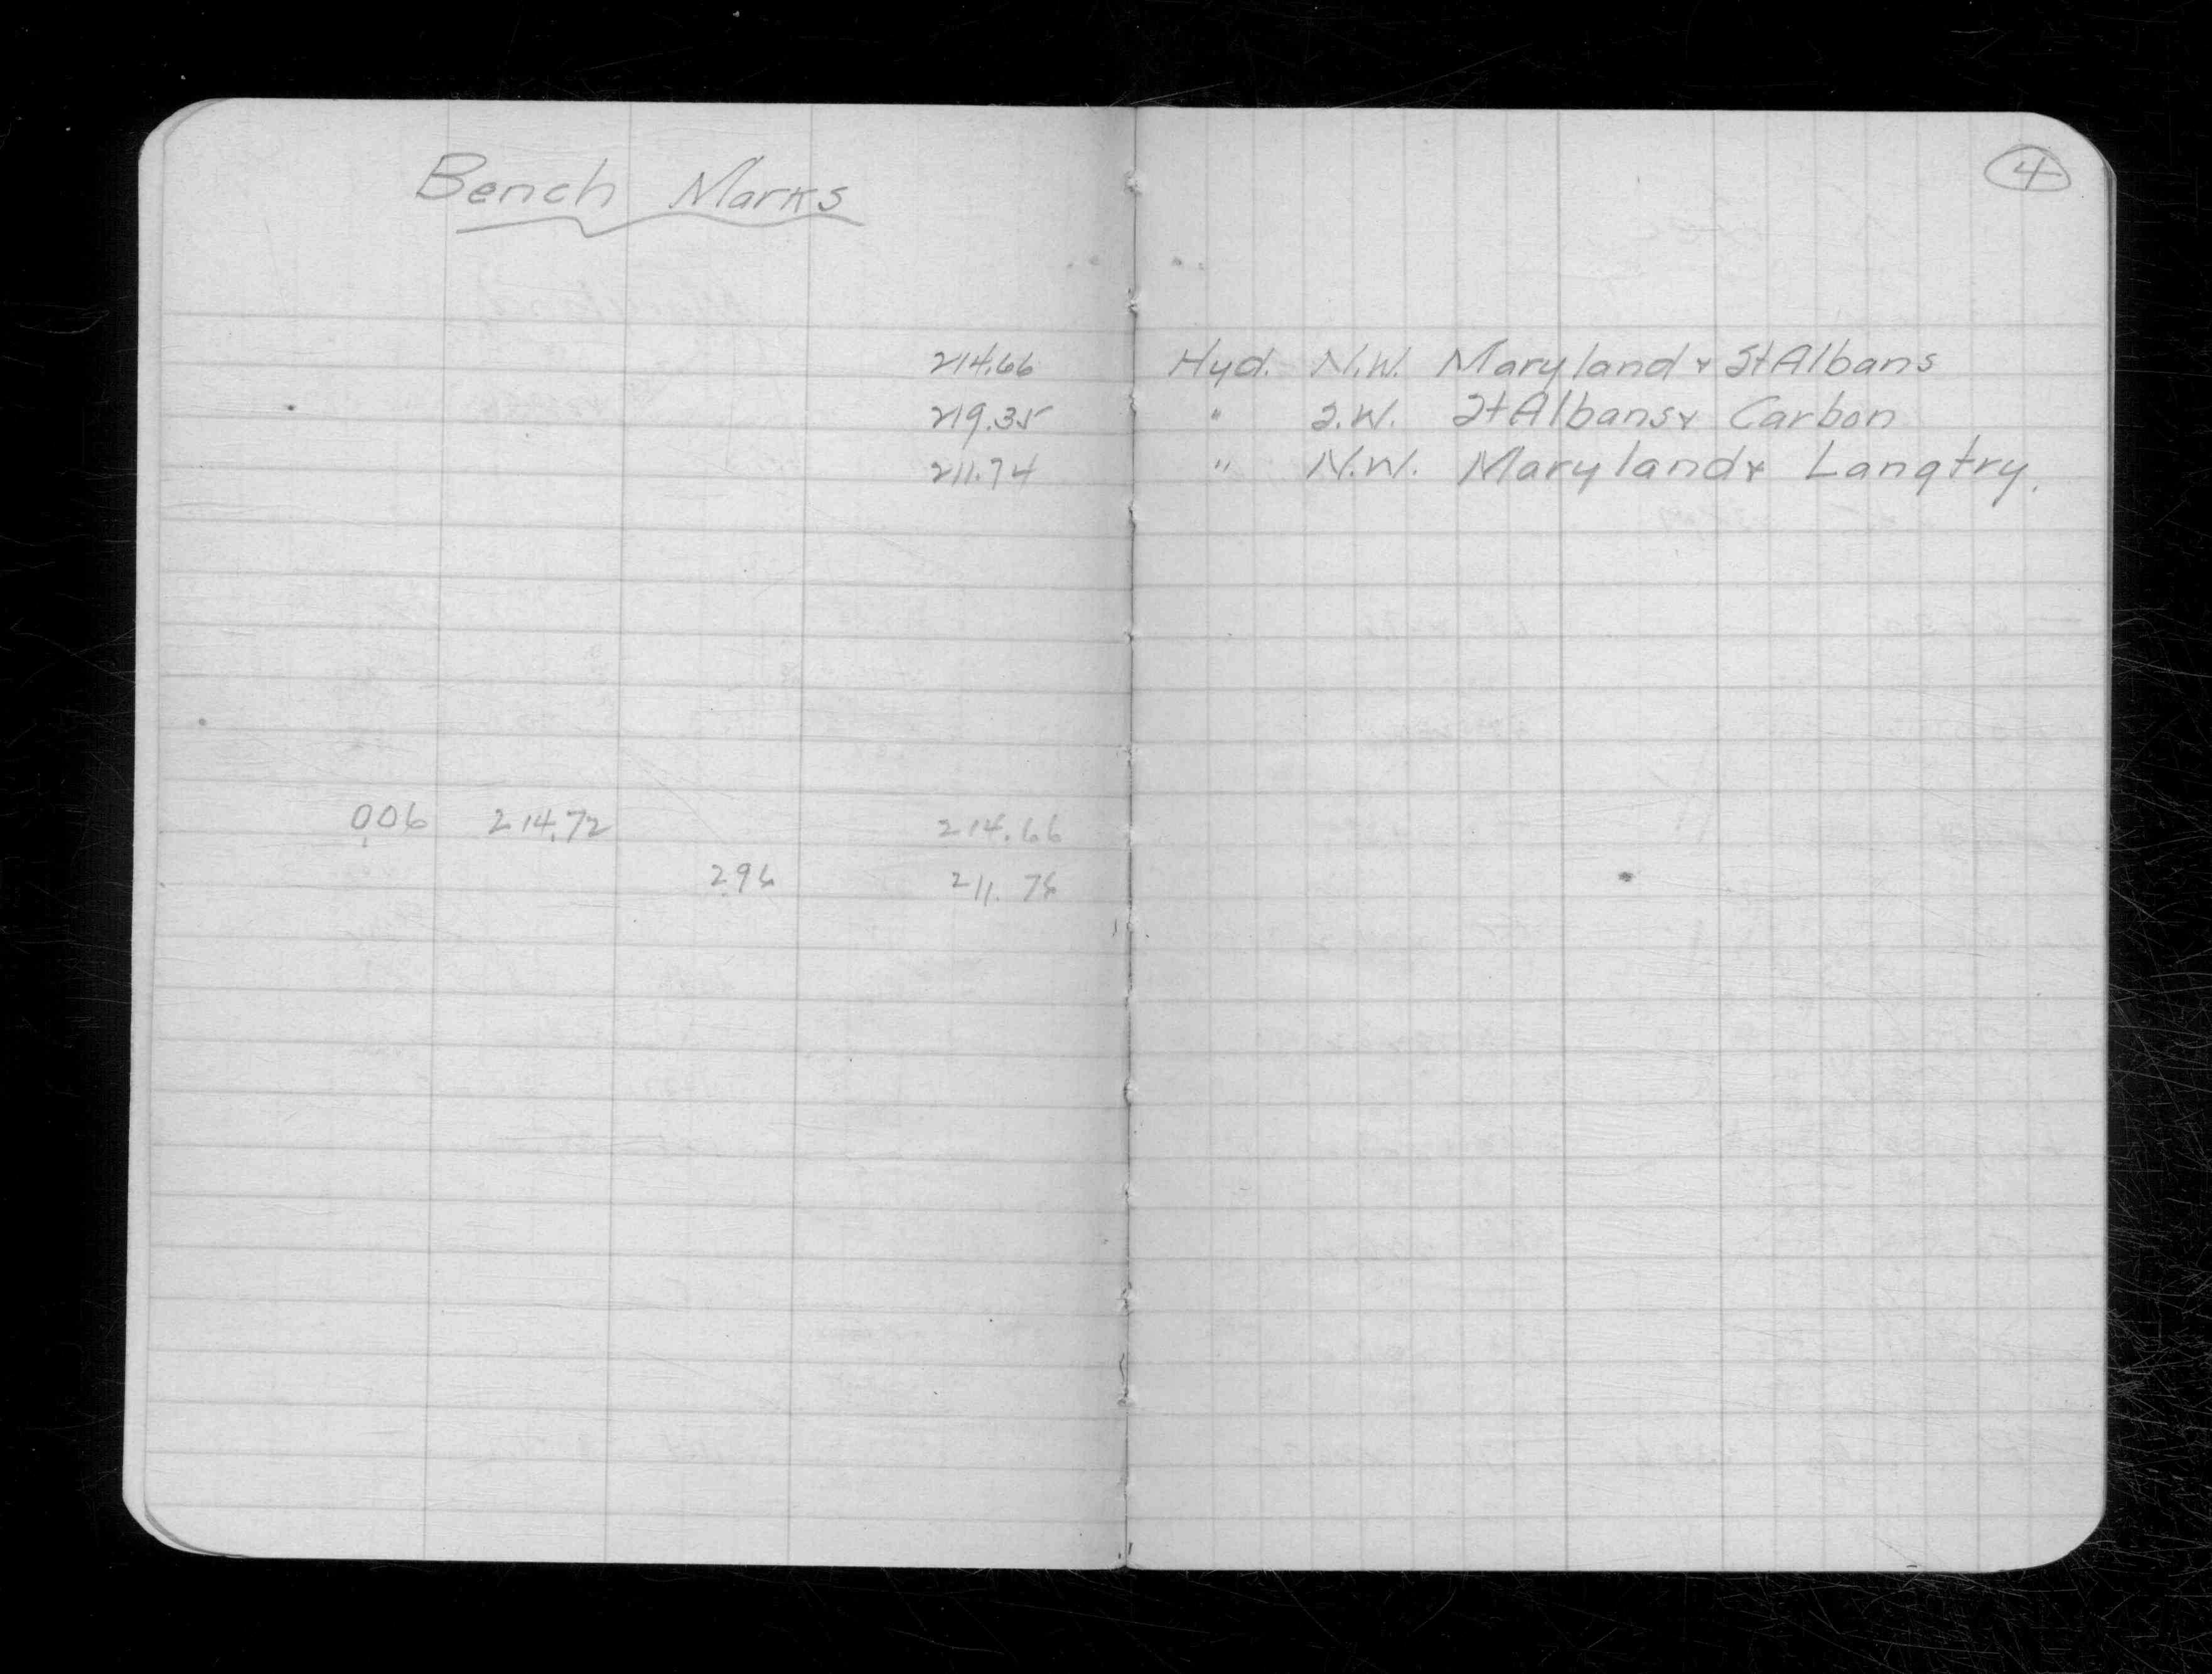 Bench Marks
4
214.66 Hyd. N.W. Maryland & St Albans
219.35 " S.W. St Albans & Carbon
211.74 " N.W. Maryland & Langtry.
0.06 214.72 214.66
2.96 211.76